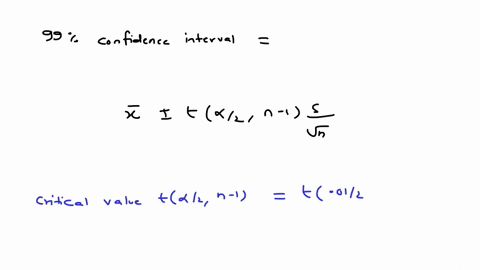 99% confidence interval =
x̄ ± t(α/2, n-1) s/√n
Critical value t(α/2, n-1) = t(.01/2